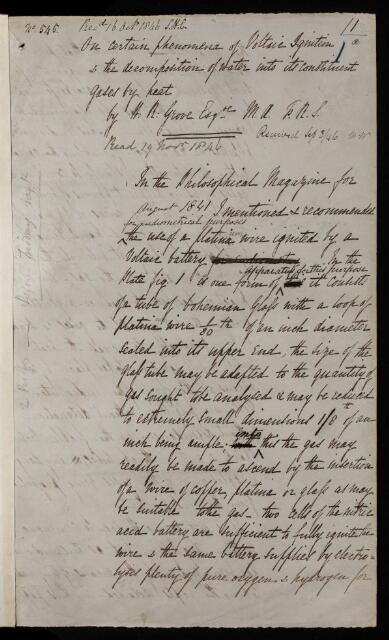 No. 545.
Recd. 16 Oct 1846 S.H.C.
11
On certain phenomena of Voltaic Ignition
& the decomposition of water into its constituent
gases by heat
by W. R. Grove Esqre M A F.R.S.
Received Sep 3/46
Read 19 Novr. 1846
In the Philosophical Magazine for
August 1841 I mentioned & recommended
for eudiometrical purposes
the use of a platina wire ignited by a
Voltaic battery In the
apparatus for this purpose
Plate fig. 1 is one form of it consists
of a tube of bohemian glass with a loop of
platina wire 1/80 th of an inch diameter
sealed into its upper end, the size of the
glass tube may be adapted to the quantity of
gas sought to be analysed & may be reduced
to extremely small dimensions 1/8 th of an
inch being ample. into this the gas may
readily be made to ascend by the insertion
of a wire of copper platina or glass as may
be suitable to the gas. two cells of the nitric
acid battery are sufficient to fully ignite the
wire & the same battery supplies by electro-
lysis plenty of pure oxygen & hydrogen for